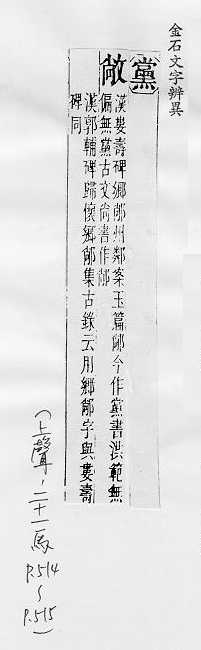 金石文字辨異
黨
敞
漢婁壽碑鄉䣊州鄰案玉篇䣊今作黨書洪範無
偏無黨古文尚書作䣊
漢郭輔碑歸懷鄉䣊集古錄云用鄉䣊字與婁壽
碑同
(上聲,二十一馬
P.514
~
P.515)